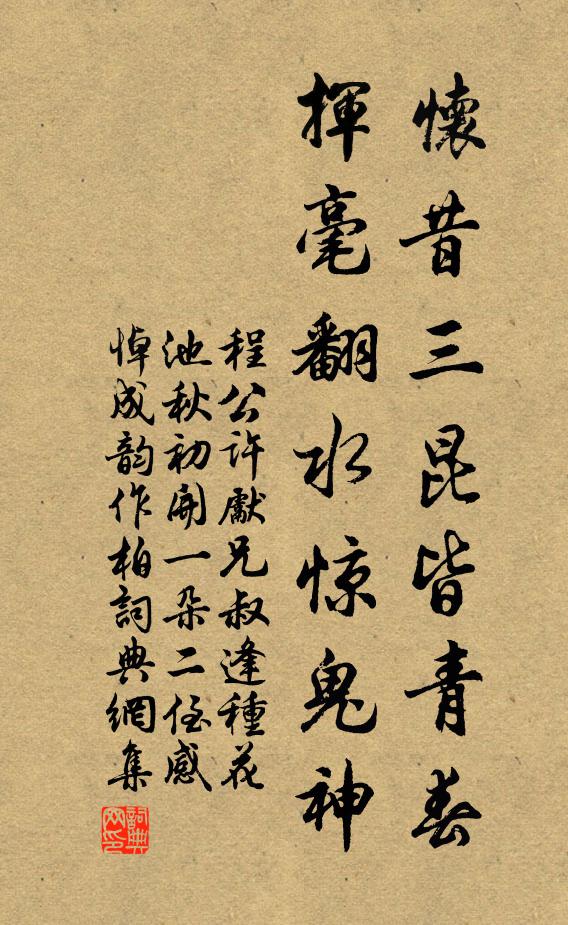 懷昔三昆皆青春
揮毫翻水惊鬼神
程公許獻兄叔逢種花
池秋初開一朵二侄感
悼成韵作柏詞典網集
詞典网印